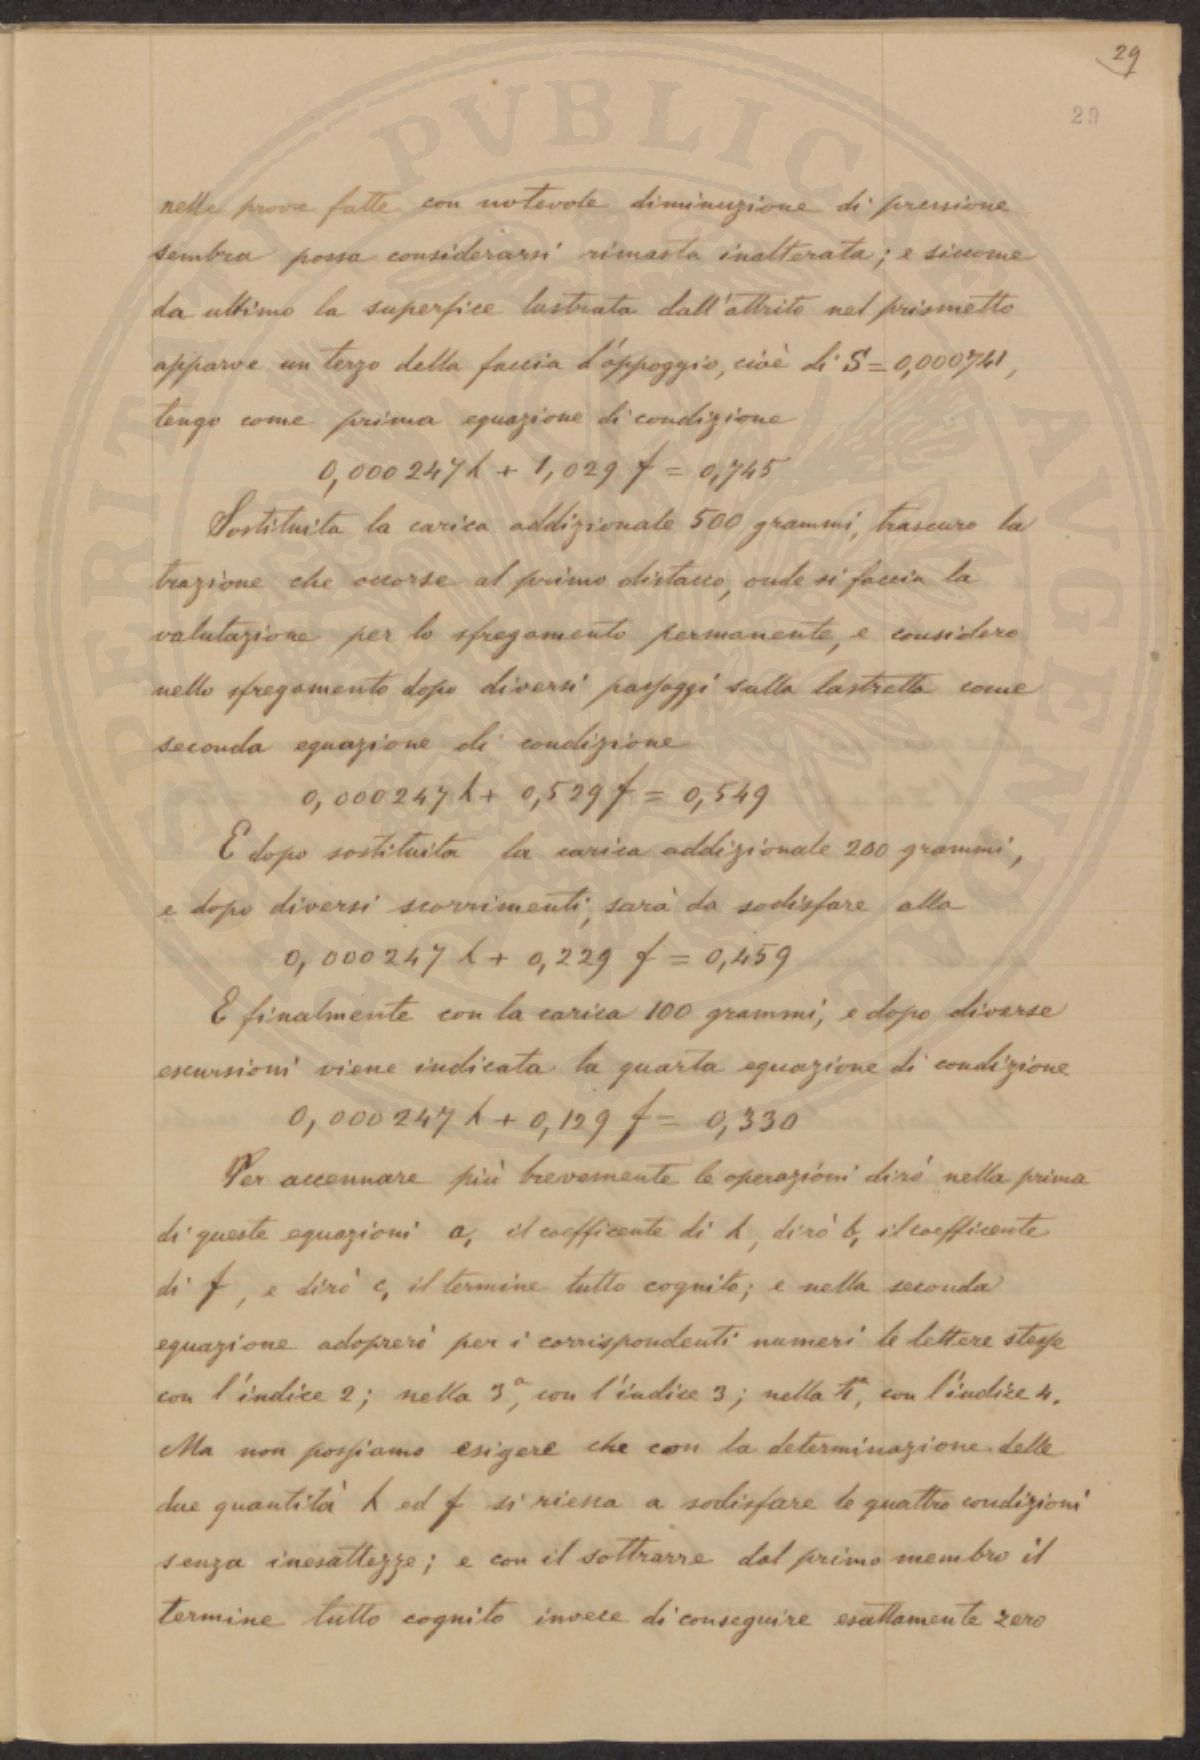 29
29
nelle prove fatte con notevole diminuzione di pressione
sembra possa considerarsi rimasta inalterata; e siccome
da ultimo la superfice lustrata dall'attrito nel prismetto
apparve un terzo della faccia d'appoggio, cioè di S = 0,000741,
tengo come prima equazione di condizione
0,000247 k + 1,029 f = 0,745
Sostituita la carica addizionale 500 grammi, trascuro la
trazione che occorse al primo distacco, onde si faccia la
valutazione per lo sfregamento permanente, e considero
nello sfregamento dopo diversi passaggi sulla lastretta come
seconda equazione di condizione
0,000247 k + 0,529 f = 0,549
E dopo sostituita la carica addizionale 200 grammi,
e dopo diversi scorrimenti, sarà da sodisfare alla
0,000247 k + 0,229 f = 0,459
E finalmente con la carica 100 grammi, e dopo diverse
escursioni viene indicata la quarta equazione di condizione
0,000247 k + 0,129 f = 0,330
Per accennare più brevemente le operazioni dirò nella prima
di queste equazioni a, il coefficente di k, dirò b, il coefficente
di f, e dirò c, il termine tutto cognito; e nella seconda
equazione adoprerò per i corrispondenti numeri le lettere stesse
con l'indice 2; nella 3ª, con l'indice 3; nella 4ª, con l'indice 4.
Ma non possiamo esigere che con la determinazione delle
due quantità k ed f si riesca a sodisfare le quattro condizioni
senza inesattezze; e con il sottrarre dal primo membro il
termine tutto cognito invece di conseguire esattamente zero